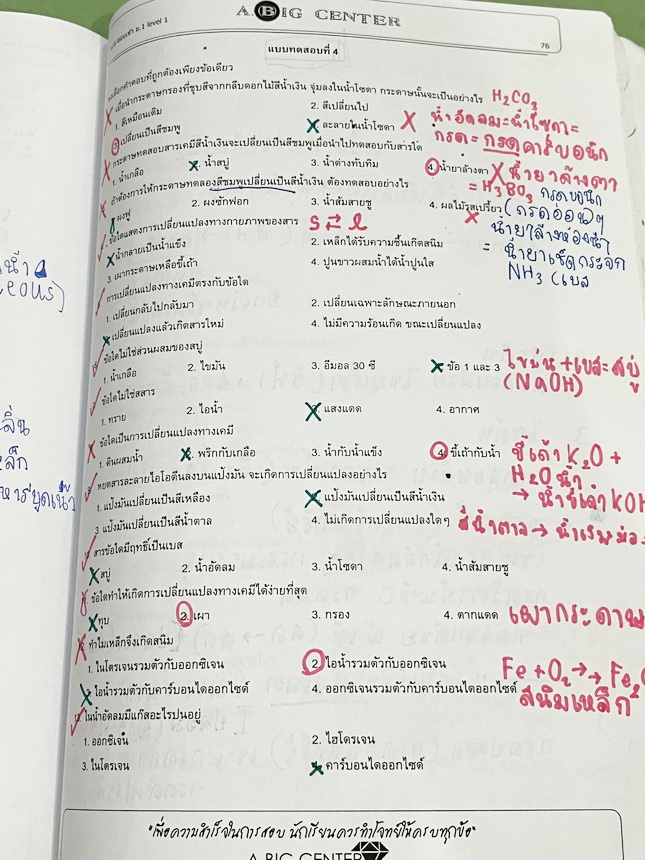 A BIG CENTER
ม.1 level 1
76
แบบทดสอบที่ 4
เลือกคำตอบที่ถูกต้องเพียงข้อเดียว
เมื่อนำกระดาษกรองที่ชุบสีจากกลีบดอกไม้สีน้ำเงิน จุ่มลงในน้ำโซดา กระดาษนั้นจะเป็นอย่างไร H2CO3
1. สีเหมือนเดิม 2. สีเปลี่ยนไป น้ำอัดลม=น้ำโซดา=
3. เปลี่ยนเป็นสีชมพู ละลายในน้ำโซดา กรด=กรดคาร์บอนิก
กระดาษทดสอบสารเคมีสีน้ำเงินจะเปลี่ยนเป็นสีชมพูเมื่อนำไปทดสอบกับสารใด
1. น้ำเกลือ 2. น้ำสบู่ 3. น้ำด่างทับทิม 4. น้ำยาล้างตา น้ำยาล้างตา
= H3BO3 กรดบอริก
ถ้าต้องการให้กระดาษทดลองสีชมพูเปลี่ยนเป็นสีน้ำเงิน ต้องทดสอบอย่างไร
ผงฟู 2. ผงซักฟอก 3. น้ำส้มสายชู 4. ผลไม้รสเปรี้ยว (กรดอ่อนๆ
ข้อใดแสดงการเปลี่ยนแปลงทางกายภาพของสาร S ⇄ l น้ำยาล้างห้องน้ำ
น้ำกลายเป็นน้ำแข็ง 2. เหล็กได้รับความชื้นเกิดสนิม = น้ำยาเช็ดกระจก
3. เผากระดาษเหลือขี้เถ้า 4. ปูนขาวผสมน้ำได้น้ำปูนใส NH3 (เบส
การเปลี่ยนแปลงทางเคมีตรงกับข้อใด
1. เปลี่ยนกลับไปกลับมา 2. เปลี่ยนเฉพาะลักษณะภายนอก
เปลี่ยนแปลงแล้วเกิดสารใหม่ 4. ไม่มีความร้อนเกิด ขณะเปลี่ยนแปลง
ข้อใดไม่ใช่ส่วนผสมของสบู่
1. น้ำเกลือ 2. ไขมัน 3. อีมอล 30 ซี ข้อ 1 และ 3 ไขมัน+เบส=สบู่
(NaOH)
ข้อใดไม่ใช่สสาร
1. ทราย 2. ไอน้ำ แสงแดด 4. อากาศ
ข้อใดเป็นการเปลี่ยนแปลงทางเคมี
1. ดินผสมน้ำ พริกกับเกลือ 3. น้ำกับน้ำแข็ง 4. ขี้เถ้ากับน้ำ ขี้เถ้า K2O +
H2O น้ำ
หยดสารละลายไอโอดีนลงบนแป้งมัน จะเกิดการเปลี่ยนแปลงอย่างไร
1. แป้งมันเปลี่ยนเป็นสีเหลือง แป้งมันเปลี่ยนเป็นสีน้ำเงิน → น้ำขี้เถ้า KOH
3. แป้งมันเปลี่ยนเป็นสีน้ำตาล 4. ไม่เกิดการเปลี่ยนแปลงใดๆ สีน้ำตาล →
สารข้อใดมีฤทธิ์เป็นเบส
สบู่ 2. น้ำอัดลม 3. น้ำโซดา 4. น้ำส้มสายชู
ข้อใดทำให้เกิดการเปลี่ยนแปลงทางเคมีได้ง่ายที่สุด
ทุบ 2. เผา 3. กรอง 4. ตากแดด เผากระดาษ
ทำไมเหล็กจึงเกิดสนิม
1. ไนโตรเจนรวมตัวกับออกซิเจน 2. ไอน้ำรวมตัวกับออกซิเจน Fe + O2 → Fe2
ไอน้ำรวมตัวกับคาร์บอนไดออกไซด์ 4. ออกซิเจนรวมตัวกับคาร์บอนไดออกไซด์ สนิมเหล็ก
ในน้ำอัดลมมีแก๊สอะไรปนอยู่
1. ออกซิเจน 2. ไฮโดรเจน
3. ไนโตรเจน คาร์บอนไดออกไซด์
"เพื่อความสำเร็จในการสอบ นักเรียนควรทำโจทย์ให้ครบทุกข้อ"
A BIG CENTER